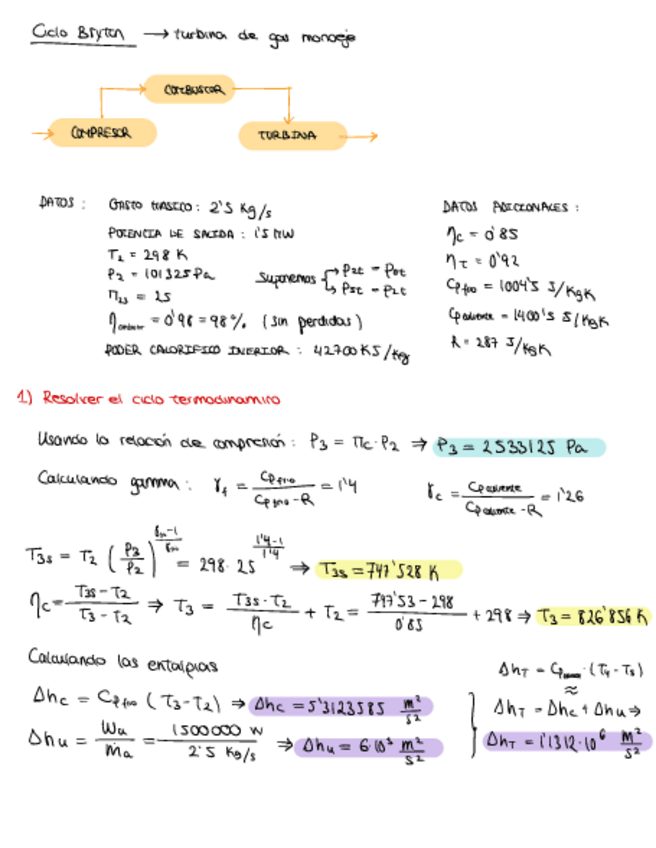 Ciclo Bryton → turbina de gas monoeje
COMBUSTOR
COMPRESOR
TURBINA
DATOS : GASTO MASICO : 2'5 Kg/s
POTENCIA DE SALIDA : 1'5 MW
T₂ = 298 K
P₂ = 101325 Pa
Suponemos P2t = P0t
P5t = P2t
Π₂₃ = 25
= 0'98 = 98 % (sin perdidas)
PODER CALORIFICO INFERIOR : 42700 KJ/kg
DATOS ADICIONALES :
ηc = 0'85
ηT = 0'92
Cp frio = 1004'5 J/KgK
Cp caliente = 1400'5 J/KgK
R = 287 J/KgK
1.) Resolver el ciclo termodinamico
Usando la relación de compresión : P₃ = Πc · P₂ ⇒ P₃ = 2533125 Pa
Calculando gamma : γf = Cp frio / (Cp frio - R) = 1'4 γc = Cp caliente / (Cp caliente - R) = 1'26
T3s = T₂ (P₃/P₂)^((γ-1)/γ) = 298 · 25^((1'4-1)/1'4) ⇒ T3s = 747'528 K
ηc = (T3s - T₂)/(T₃ - T₂) ⇒ T₃ = (T3s - T₂)/ηc + T₂ = (747'53 - 298)/0'85 + 298 ⇒ T₃ = 826'856 K
Calculando las entalpias
Δhc = Cp frio (T₃ - T₂) ⇒ Δhc = 5'3123585 m²/s²
Δhu = Wu/ṁa = 1500000 W / 2'5 Kg/s ⇒ Δhu = 6·10⁵ m²/s²
ΔhT = Cp · (T₄ - T₅)
≈
ΔhT = Δhc + Δhu ⇒
ΔhT = 1'1312·10⁶ m²/s²